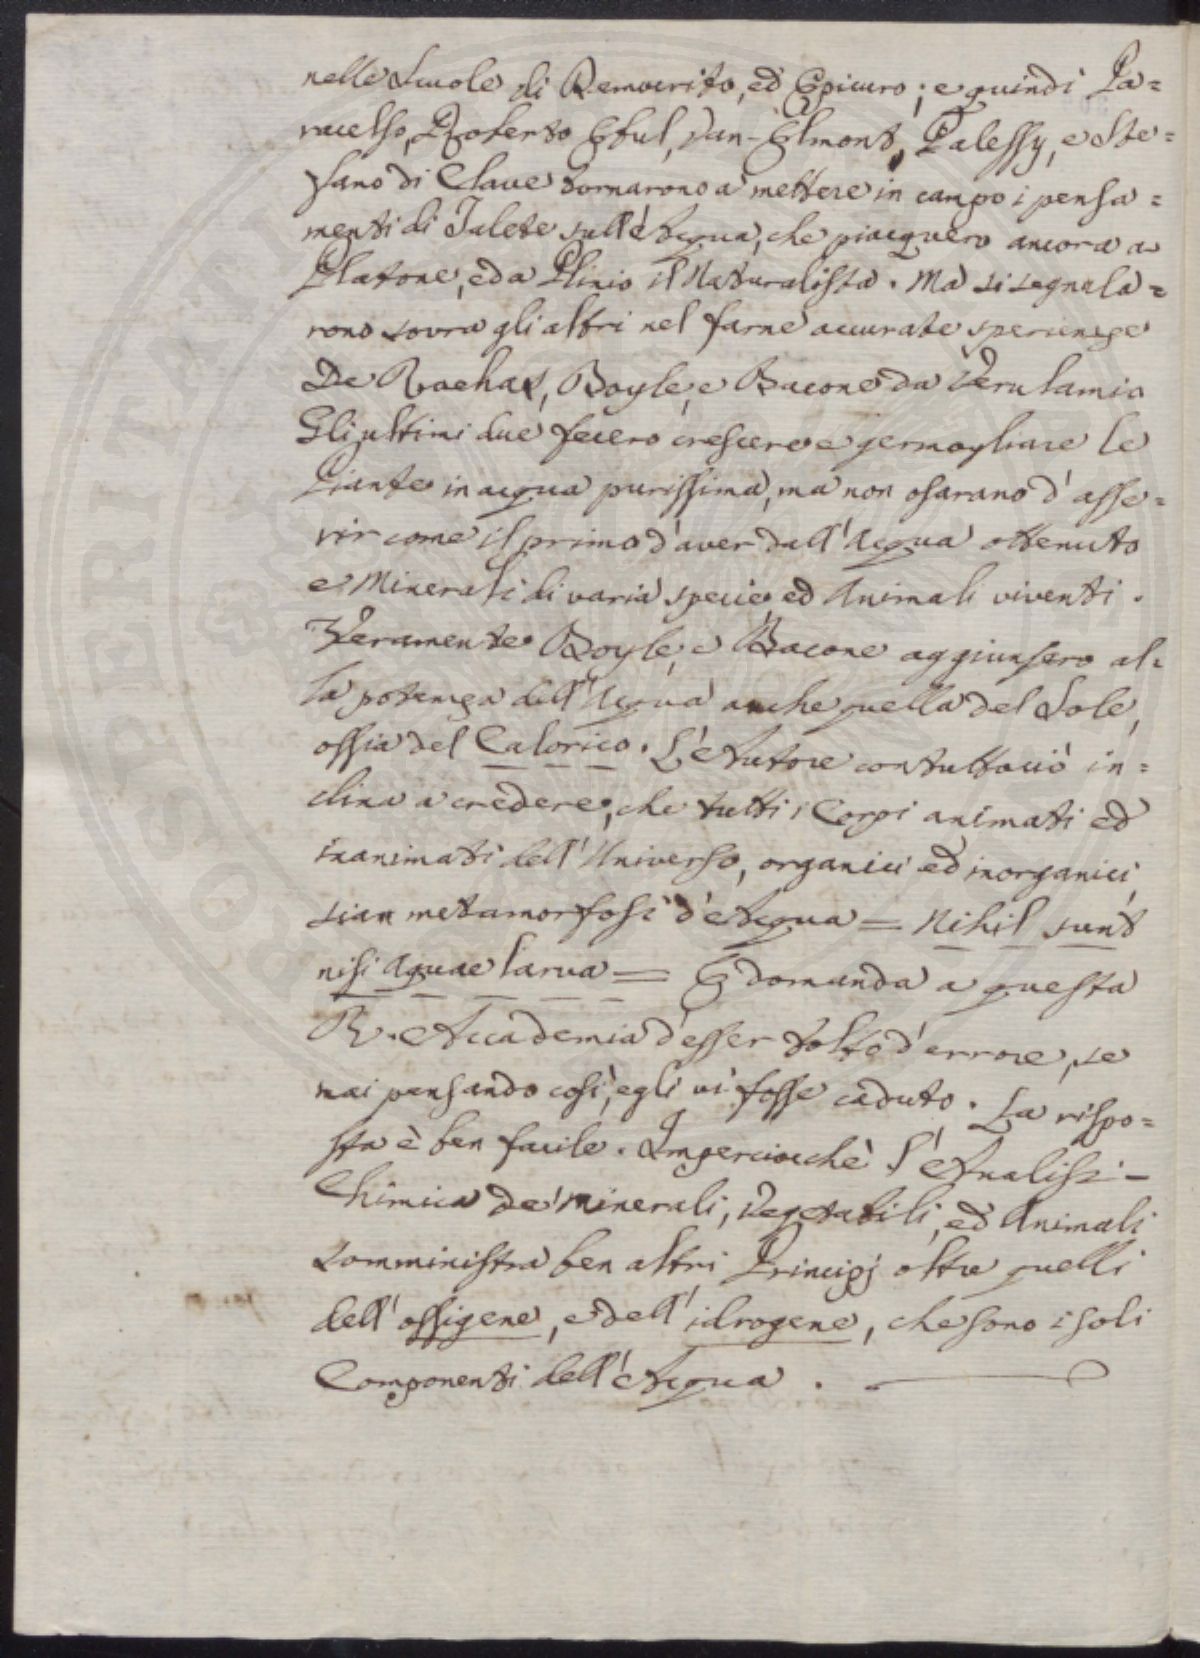 nelle Scuole di Democrito, ed Epicuro; e quindi Pa=
racelso, Roberto Eful, Van-Elmont, Palessy, e Ste=
fano di Clave tornarono a mettere in campo i pensa=
menti di Talete sull'Acqua, che piacquero ancora a
Platone, ed a Plinio il Naturalista. Ma si segnala=
rono sovra gli altri nel farne accurate sperienze
De Rochas, Boyle, e Bacone da Verulamio
Gli ultimi due fecero crescere e germogliare le
Piante in acqua purissima, ma non osarano d'asse=
rir come il primo d'aver dall'Acqua ottenuto
e Minerali di varia specie, ed Animali viventi.
Veramente Boyle, e Bacone aggiunsero al=
la potenza dell'Acqua anche quella del Sole,
ossia del Calorico. L'Autore contuttociò in=
clina a credere, che tutti i Corpi animati ed
inanimati dell'Universo, organici ed inorganici,
sian metamorfosi d'Acqua = Nihil sunt
nisi Aquae larva = E domanda a questa
R. Accademia d'esser tolto d'errore, se
mai pensando così, egli vi fosse caduto. La rispo=
sta è ben facile. Imperciocchè l'Analisi-
Chimica de' Minerali, Vegetabili, ed Animali
somministra ben altri Principj oltre quelli
dell'ossigene, e dell'idrogene, che sono i soli
Componenti dell'Acqua.